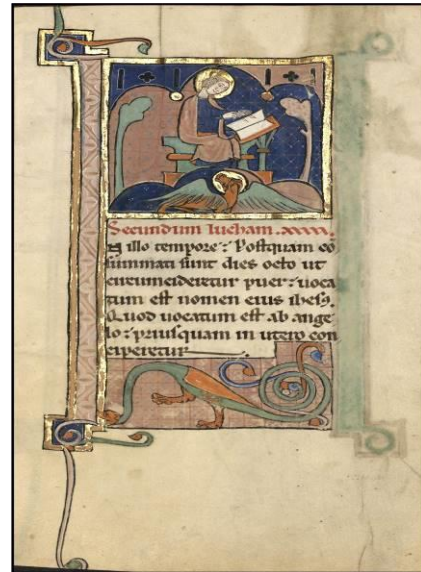 Secundum lucham .xxxxx.
N illo tempore : Postquam cō
summati sunt dies octo ut
circumcideretur puer : uoca
tum est nomen eius ihesꝰ.
Quod uocatum est ab ange
lo : priusquam in utero con
ciperetur